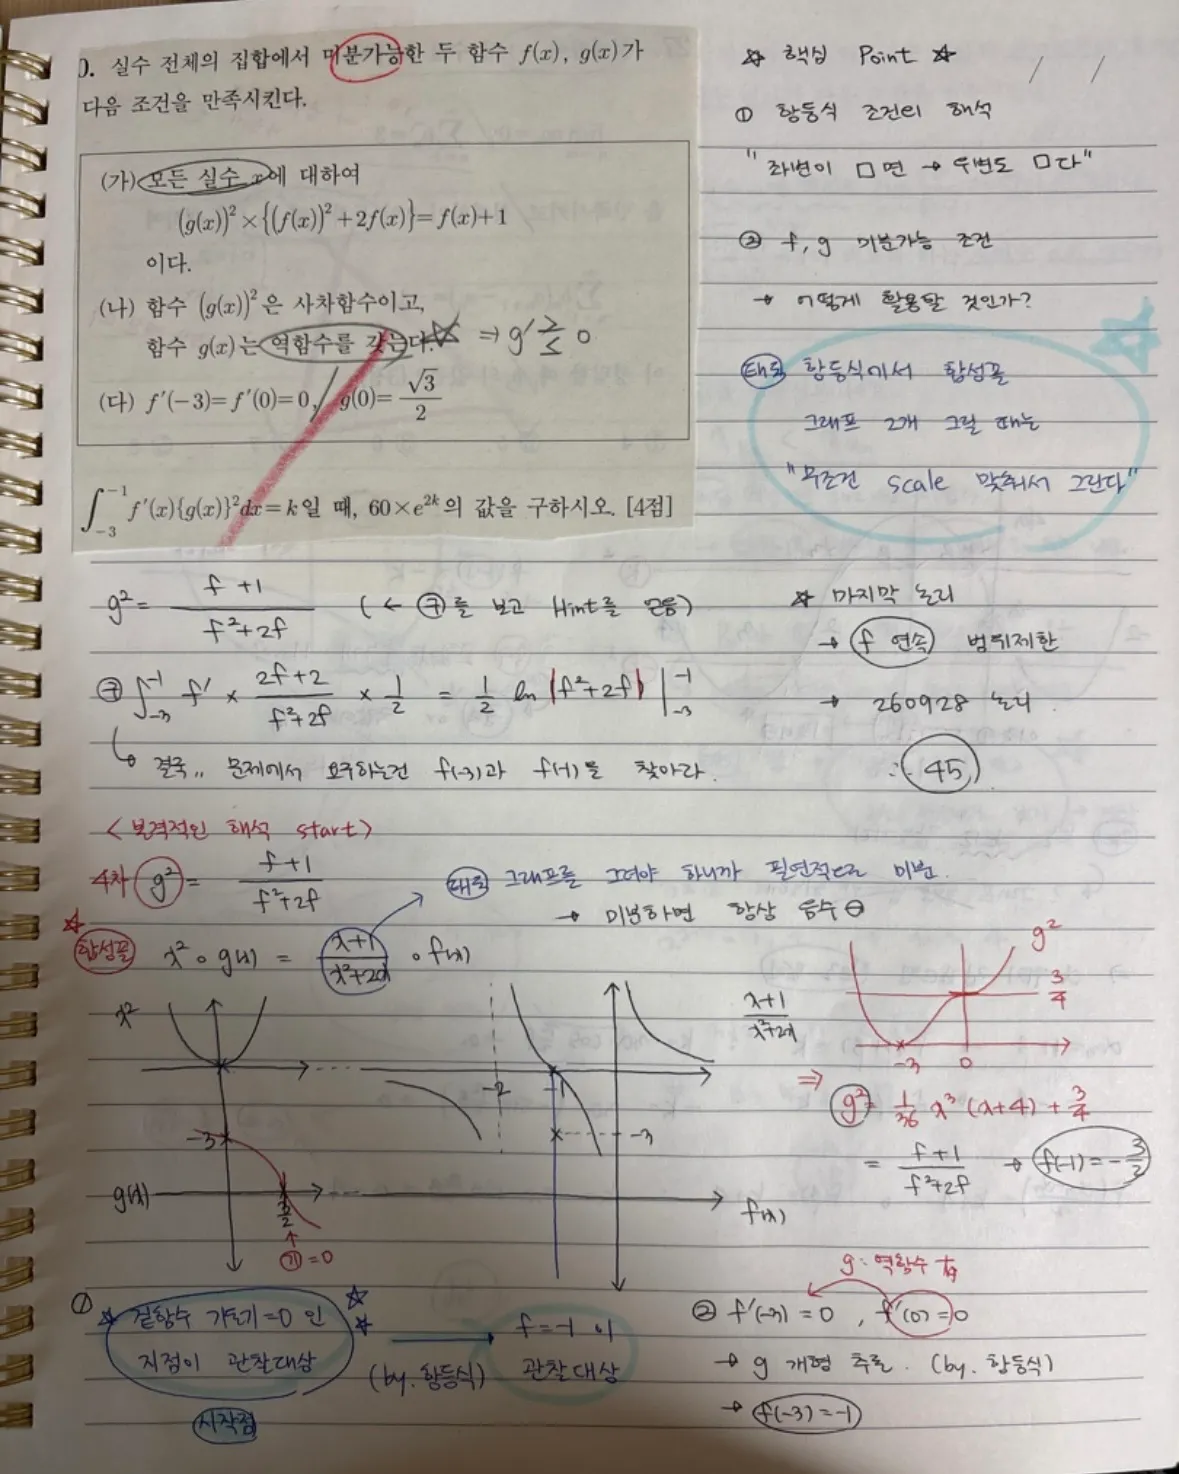 0. 실수 전체의 집합에서 미분가능한 두 함수 f(x), g(x)가
다음 조건을 만족시킨다.
(가) 모든 실수 x에 대하여
(g(x))² × {(f(x))² + 2f(x)} = f(x)+1
이다.
(나) 함수 (g(x))²은 사차함수이고,
함수 g(x)는 역함수를 갖는다. ⇒ g' ≥≤ 0
(다) f'(-3)=f'(0)=0, g(0)=√3/2
∫₋₃⁻¹ f'(x){g(x)}²dx=k일 때, 60×e²ᵏ의 값을 구하시오. [4점]
☆ 핵심 Point ☆
① 항등식 조건의 해석
"좌변이 □면 → 우변도 □다"
② f, g 미분가능 조건
→ 어떻게 활용할 것인가?
태도 항등식에서 합성꼴
그래프 2개 그릴 때는
"무조건 scale 맞춰서 그린다"
g² = (f+1)/(f²+2f) (← 구를 보고 Hint를 얻음)
구 ∫₋₃⁻¹ f' × (2f+2)/(f²+2f) × 1/2 = 1/2 ln|f²+2f| |₋₃⁻¹
↳ 결국,, 문제에서 요구하는건 f(-3)과 f(-1)을 찾아라.
☆ 마지막 논리
→ f 연속 범위제한
→ 260928 논리
∴ 45
<본격적인 해석 start>
4차 g² = (f+1)/(f²+2f)
태도 그래프를 그려야 하니까 필연적으로 미분.
→ 미분하면 항상 음수 ⊖
☆ 합성꼴 x²∘g(x) = (x+1)/(x²+2x) ∘ f(x)
x²
-2
-1
-3
(x+1)/(x²+2x)
g²
3/4
-3
0
⇒ g² = 1/36 x³(x+4) + 3/4
= (f+1)/(f²+2f) → f(-1) = -3/2
-3
g(x)
f(x)
기=0
① ☆ 겉함수 기울기=0 인
지점이 관찰대상
시작점
(by. 항등식)
f=-1 이
관찰대상
g: 역함수
② f'(-3)=0, f'(0)=0
→ g 개형 추론. (by. 항등식)
→ f(-3)=-1